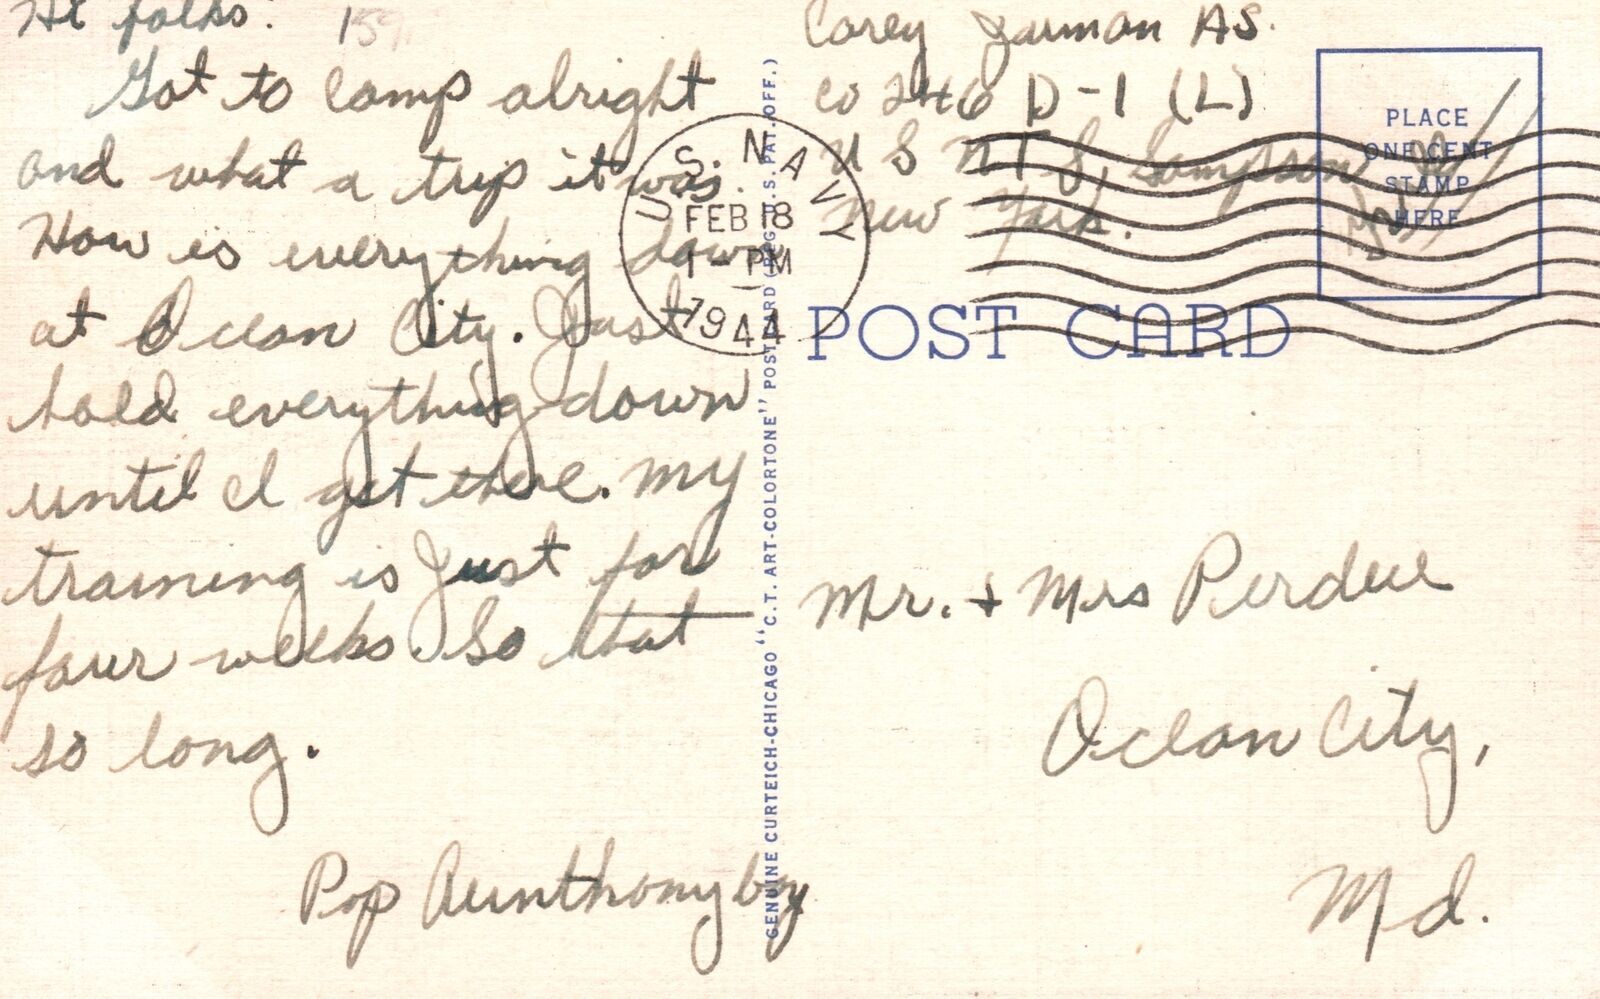 Hi folks.
159
Got to Camp alright
and what a trip it was.
How is everything down
at Ocean City. Just
hold everything down
until I get there. My
training is Just for
four weeks. So that
so long.
Pop Aunthony boy
GENUINE CURTEICH-CHICAGO "C.T. ART-COLORTONE" POST CARD (REG. U.S. PAT. OFF.)
U.S. NAVY
FEB 18
1-PM
1944
Corey Jarman AS.
Co 246 D-1 (L)
U S N T S, Sampson
New York.
PLACE
ONE CENT
STAMP
HERE
POST CARD
Mr. + Mrs Perdue
Ocean City,
Md.